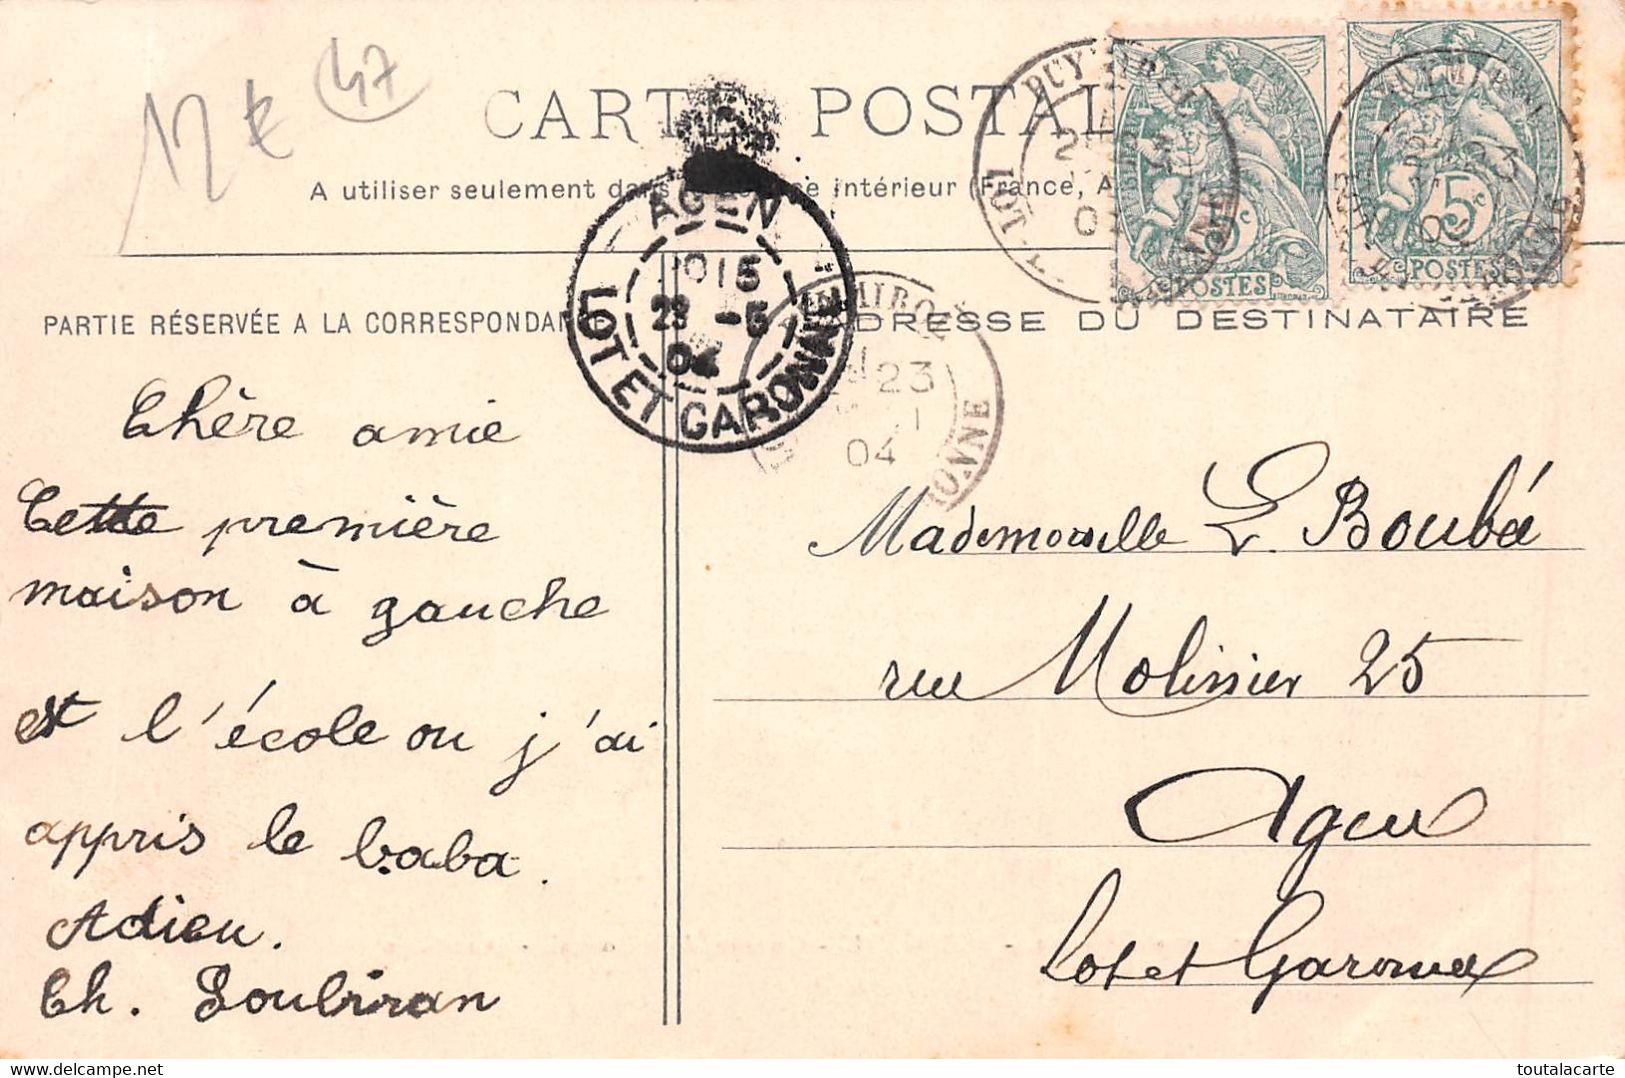 12 € 47
CARTE POSTALE
A utiliser seulement dans le service intérieur (France, A
PARTIE RÉSERVÉE A LA CORRESPONDANCE
ADRESSE DU DESTINATAIRE
AGEN
1015
23 -5
04
LOT ET GARONNE
PUYMIROL
23
04
LOT-ET-GARONNE
5c
POSTES
5c
POSTES
Chère amie
Cette première
maison à gauche
est l'école ou j'ai
appris le baba.
Adieu.
Ch. Soubiran
Mademoiselle E. Boubée
rue Molinier 25
Agen
Lot et Garonne
Delcampe.net
toutalacarte